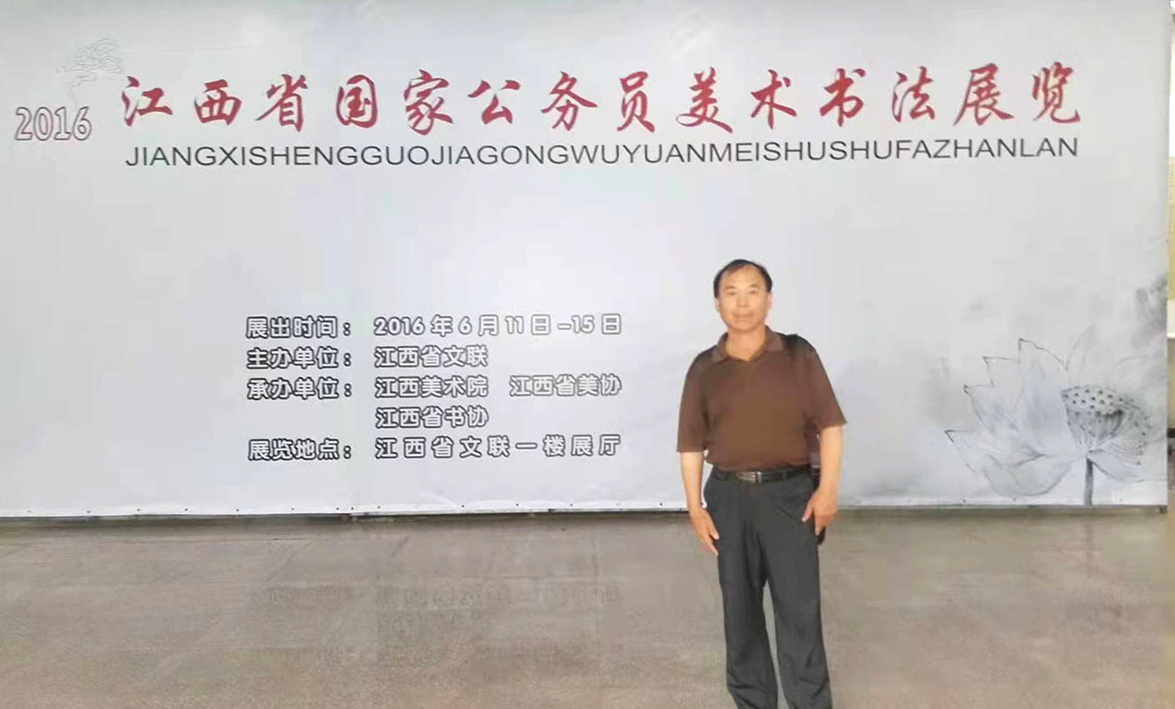 2016 江西省国家公务员美术书法展览
JIANGXISHENGGUOJIAGONGWUYUANMEISHUSHUFAZHANLAN
展出时间： 2016年6月11日-15日
主办单位： 江西省文联
承办单位： 江西美术院 江西省美协
江西省书协
展览地点： 江西省文联一楼展厅